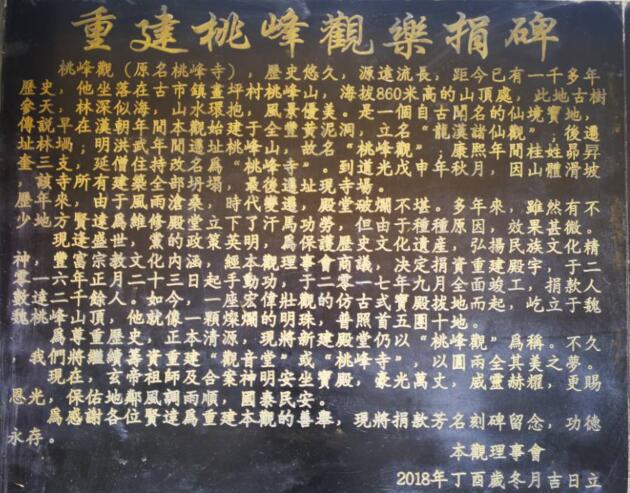 重建桃峰觀樂捐碑
桃峰觀（原名桃峰寺），歷史悠久，源遠流長，距今已有一千多年
歷史，他坐落在古市鎮畫坪村桃峰山，海拔860米高的山頂處，此地古樹
參天，林深似海，山水環抱，風景優美。是一個自古聞名的仙境寶地，
傳說早在漢朝年間本觀始建于全豐黃泥洞，立名“龍漢諸仙觀”；後遷
址林塌；明洪武年間遷址桃峰山，故名“桃峰觀”；康熙年間桂姓昴昇
奎三支，延僧住持改名為“桃峰寺”。到道光戊申年秋月，因山體滑坡
，該寺所有建築全部坍塌，最後遷址現寺場。
歷年來，由于風雨滄桑，時代變遷，殿堂破爛不堪。多年來，雖然有不
少地方賢達爲維修殿堂立下了汗馬功勞，但由于種種原因，效果甚微。
現逢盛世，黨的政策英明，爲保護歷史文化遺産，弘揚民族文化精
神，豐富宗教文化内涵，經本觀理事會商議，決定捐資重建殿宇，于二
零一六年正月二十三日起手動功，于二零一七年九月全面竣工，捐款人
數達二千餘人。如今，一座宏偉壯觀的仿古式寶殿拔地而起，屹立于魏
魏桃峰山頂，他就像一顆燦爛的明珠，普照首五團十地。
爲尊重歷史，正本清源，現將新建殿堂仍以“桃峰觀”爲稱。不久
，我們將繼續籌資重建“觀音堂”或“桃峰寺”，以圓兩全其美之夢。
現在，玄帝祖師及合案神明安坐寶殿，豪光萬丈，威靈赫耀，更賜
恩光，保佑地鄰風調雨順，國泰民安。
爲感謝各位賢達爲重建本觀的善舉，現將捐款芳名刻碑留念，功德
永存。
本觀理事會
2018年丁酉歲冬月吉日立